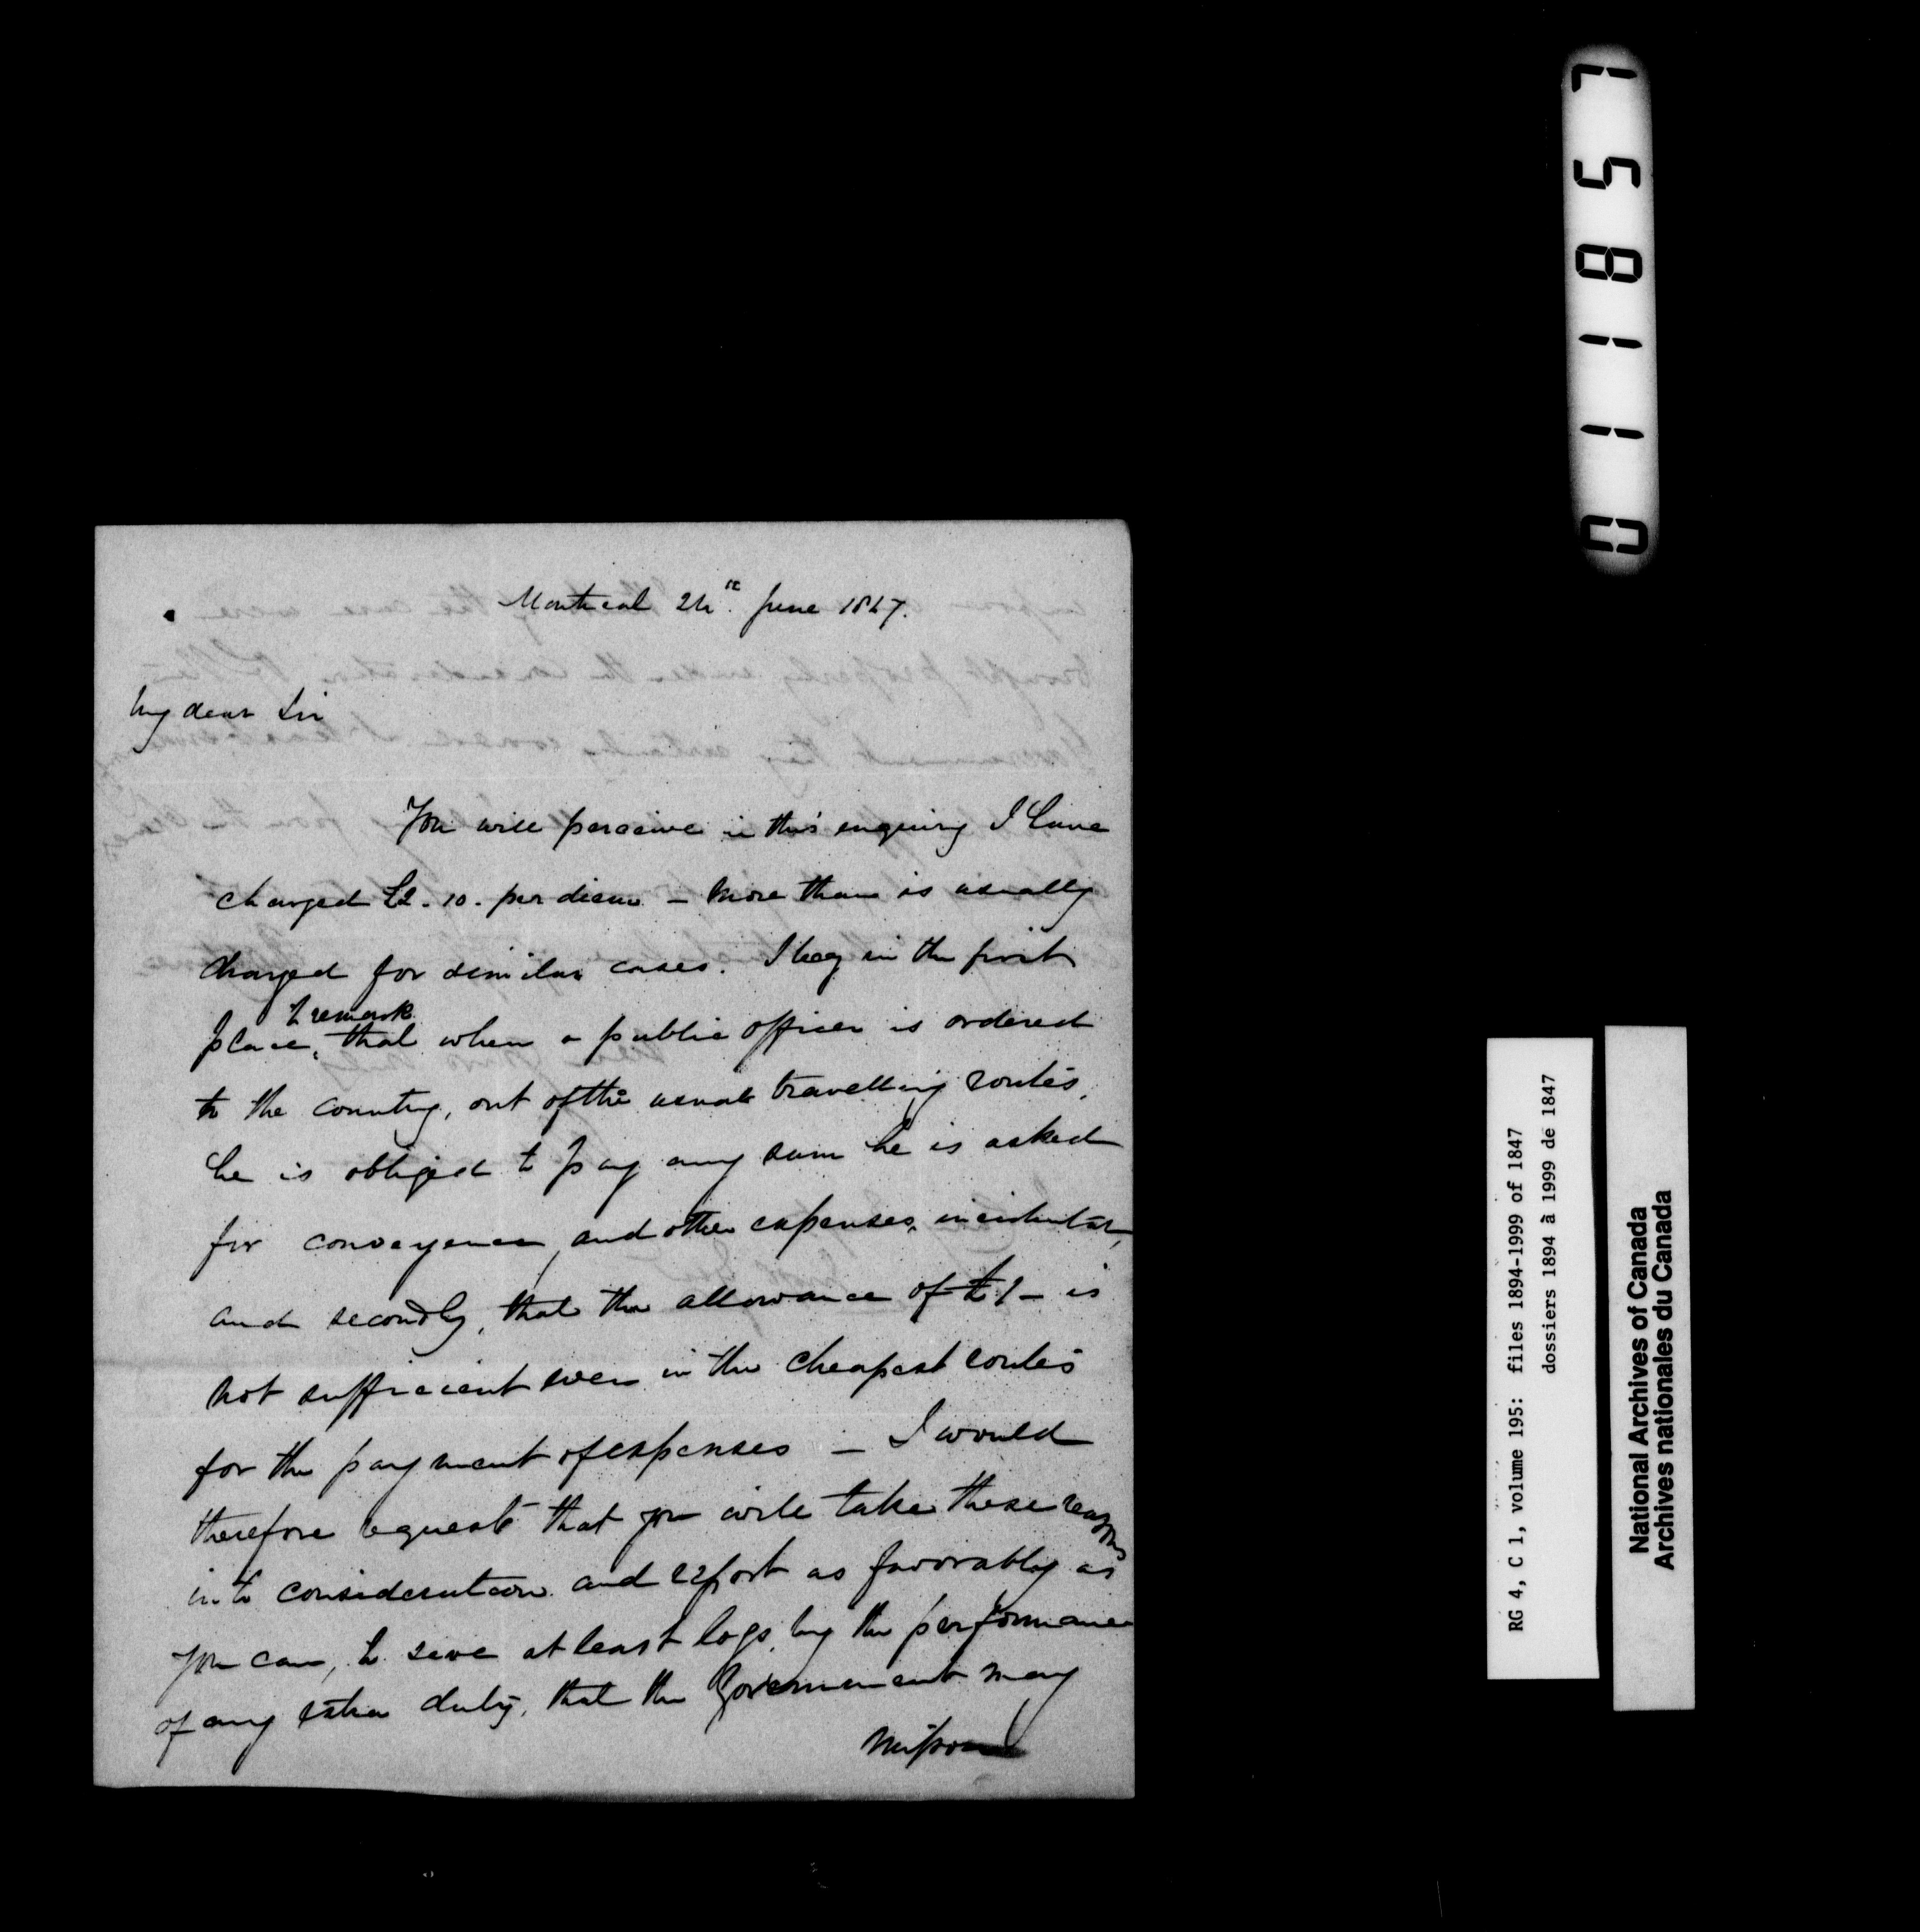 Montreal 24th. June 1847.
My dear Sir
You will perceive in this enquiry I have
charged £2.10. per diem — more than is usually
charged for similar cases. I beg in the first
place, to remark that when a public officer is ordered
to the country, out of the usual travelling routes,
he is obliged to pay any sum he is asked
for conveyance, and other expenses, incidental,
and secondly, that the allowance of £1 — is
not sufficient even in the cheapest routes
for the payment of expenses — I would
therefore request that you will take these reasons
into consideration and report as favorably as
you can, to save at least loss, by the performance
of any extra duty, that the Government may
impose
011857
RG 4, C 1, volume 195: files 1894-1999 of 1847
dossiers 1894 à 1999 de 1847
National Archives of Canada
Archives nationales du Canada